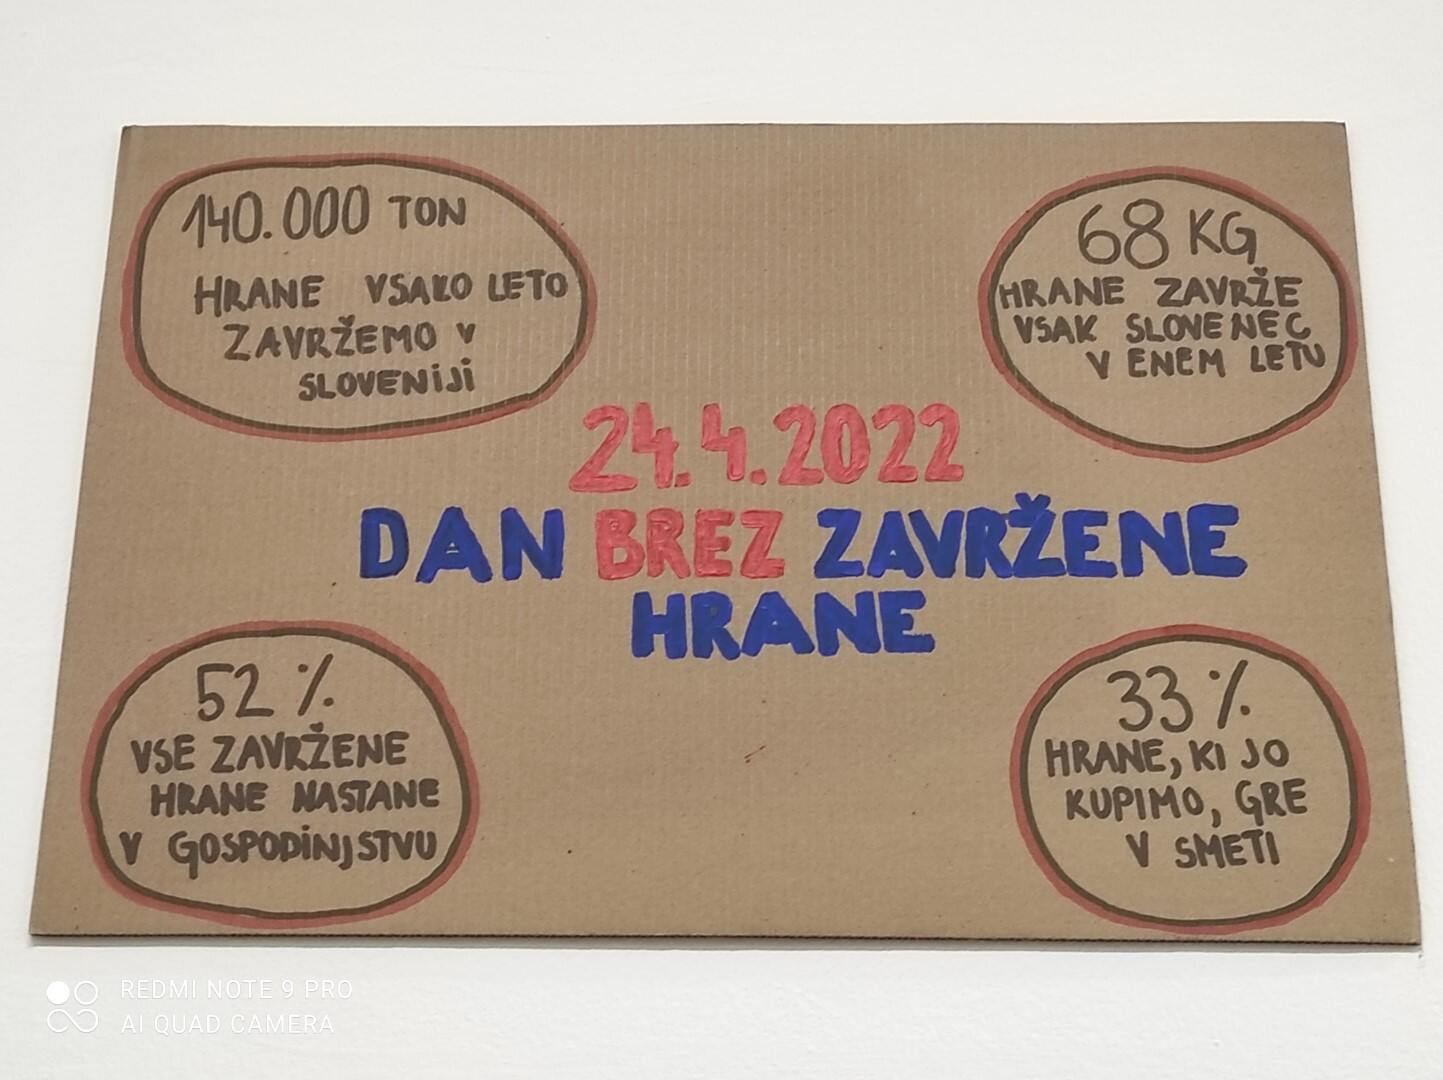 140.000 TON
HRANE VSAKO LETO
ZAVRŽEMO V
SLOVENIJI
68 KG
HRANE ZAVRŽE
VSAK SLOVENEC
V ENEM LETU
24.4.2022
DAN BREZ ZAVRŽENE
HRANE
52 %
VSE ZAVRŽENE
HRANE NASTANE
V GOSPODINJSTVU
33 %
HRANE, KI JO
KUPIMO, GRE
V SMETI
REDMI NOTE 9 PRO
AI QUAD CAMERA